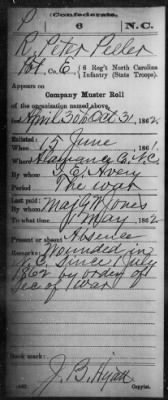 P
Confederate.
6 N.C.
R. Peter Peeler
Pvt, Co. E, 6 Reg't North Carolina
Infantry (State Troops).
Appears on
Company Muster Roll
of the organization named above,
for April 30 to Oct 31, 1862.
Enlisted:
When 15 June, 1861.
Where Alamance Co. N.C.
By whom I. E. Avery
Period The war
Last paid:
By whom May G W Jones
To what time May, 1862.
Present or absent Absence
Remarks: Wounded in
N.C. since 1 July
1862 by order of
Sec of war
Book mark:
J. B. Hyatt
Copyist.